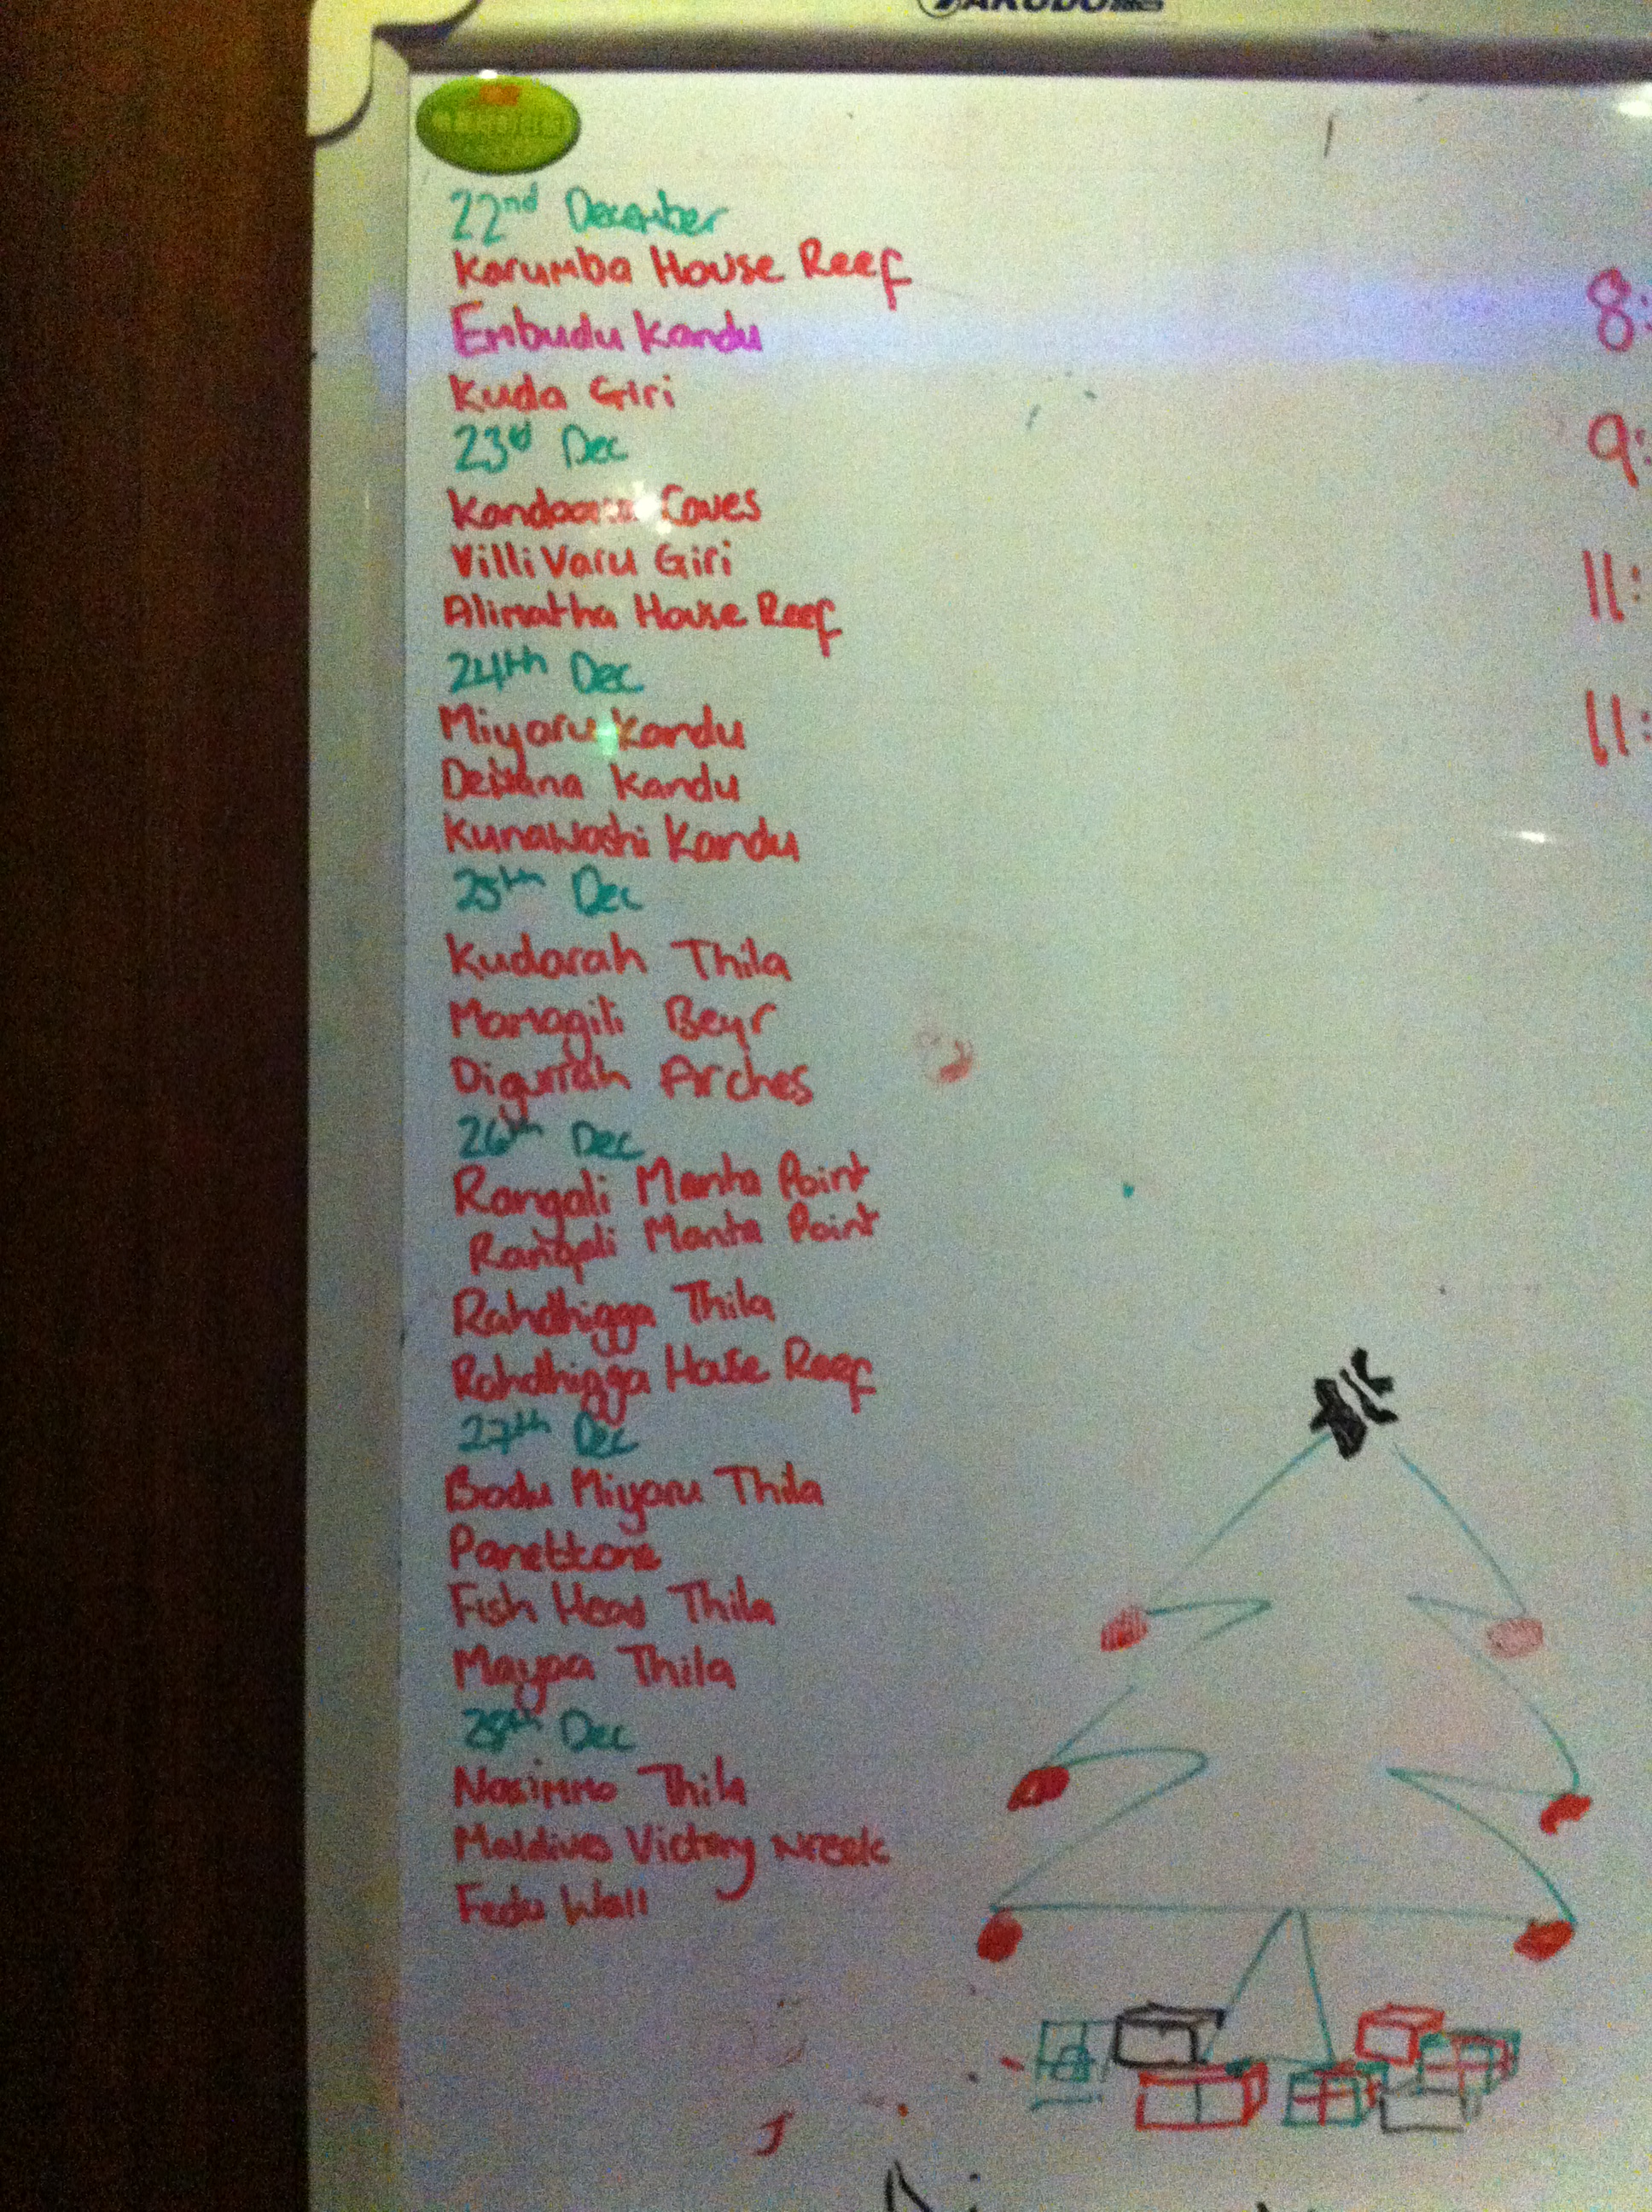 22nd December
Karumba House Reef
Embudu Kandu
Kuda Giri
23rd Dec
Caves
Villi Varu Giri
Alimatha House Reef
24th Dec
Miyaru Kandu
Dewana Kandu
Kunawashi Kandu
25th Dec
Kudarah Thila
Mamagili Beyr
Digurah Arches
26th Dec
Rangali Manta Point
Rangali Manta Point
Rahdhigga Thila
Rahdhigga House Reef
27th Dec
Bodu Miyaru Thila
Panettone
Fish Head Thila
Mayaa Thila
28th Dec
Nasimmo Thila
Maldives Victory Wreck
Fedu Wall
8:
9:
11:
11: